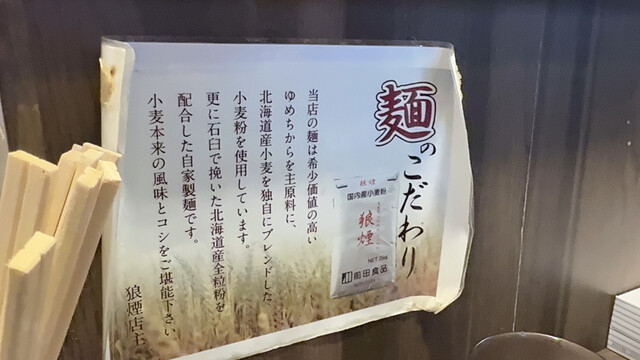 麺のこだわり
当店の麺は希少価値の高い
ゆめちからを主原料に、
北海道産小麦を独自にブレンドした
小麦粉を使用しています。
更に石臼で挽いた北海道産全粒粉を
配合した自家製麺です。
小麦本来の風味とコシをご堪能下さい。
狼煙店主
国内産小麦粉
狼煙
前田食品